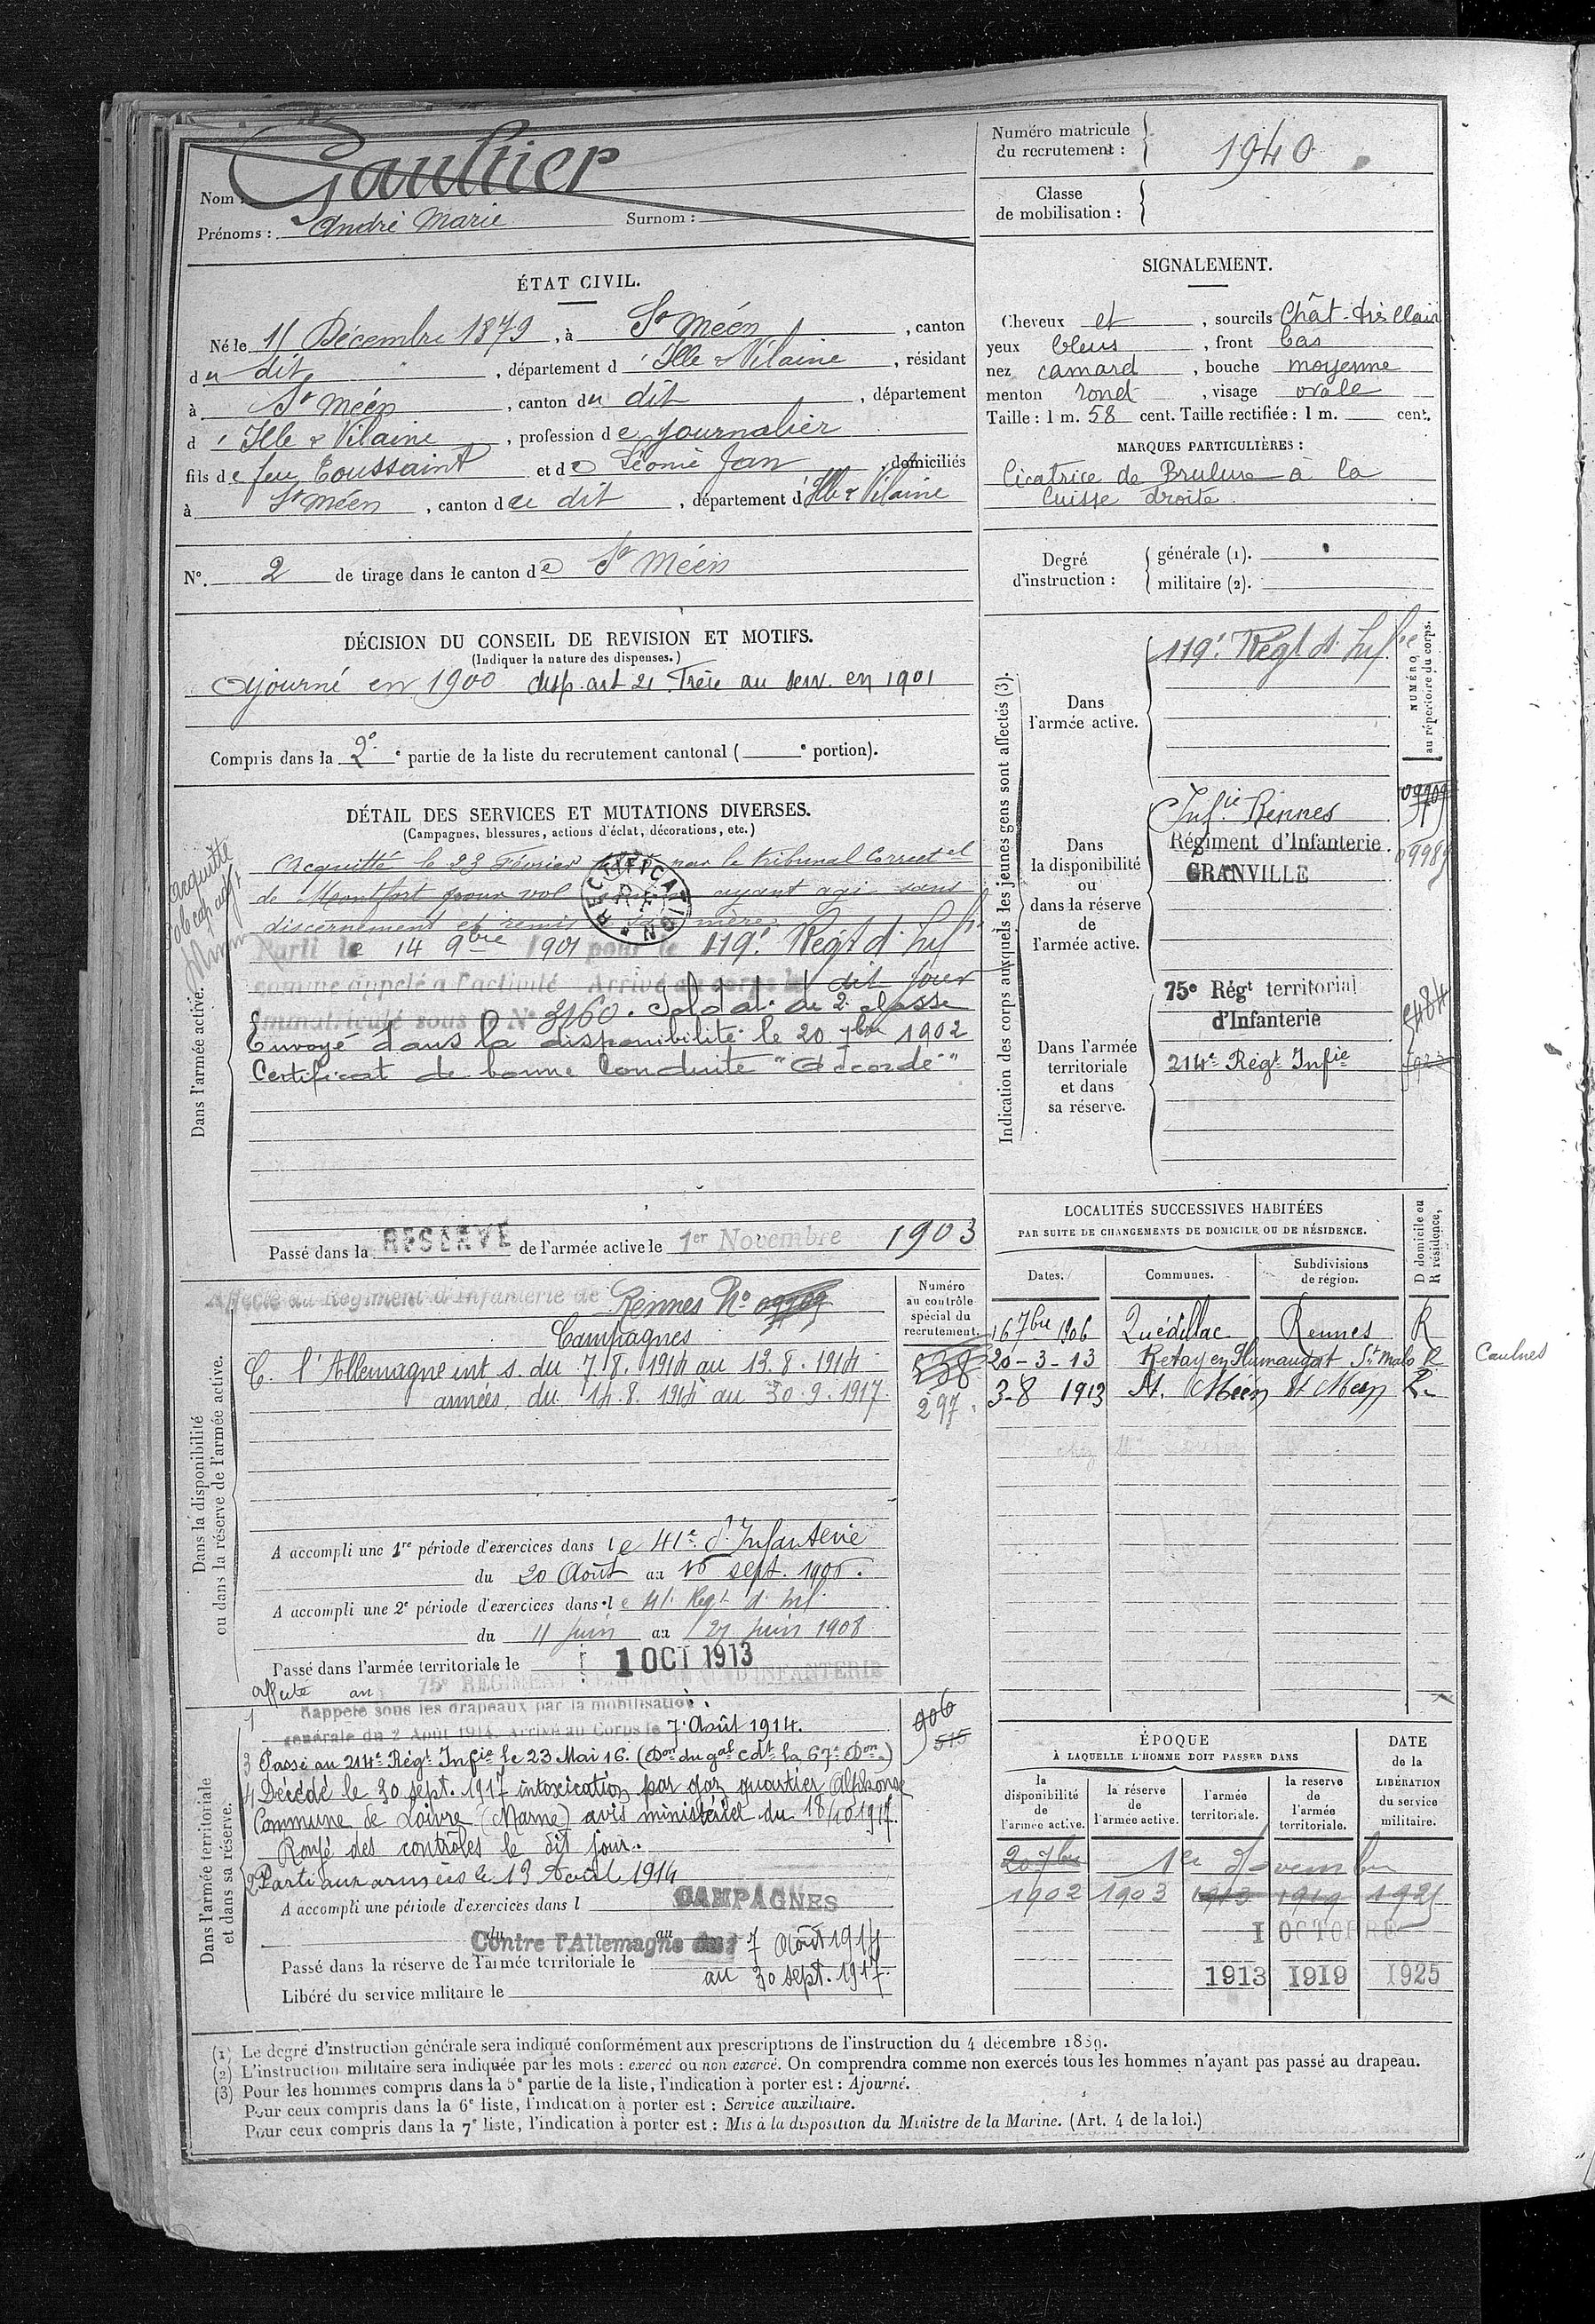 Nom : Gaultier
Prénoms : André Marie Surnom :
Numéro matricule du recrutement : 1940
Classe de mobilisation :
ÉTAT CIVIL.
Né le 11 Décembre 1879, à St Méen, canton
du dit, département d'Ille & Vilaine, résidant
à St Méen, canton du dit, département
d'Ille & Vilaine, profession de journalier
fils de feu Toussaint et de Léonie Jan domiciliés
à St Méen, canton de ce dit, département d'Ille & Vilaine
No. 2 de tirage dans le canton de St Méen
SIGNALEMENT.
Cheveux et, sourcils Chât-très clair
yeux bleus, front bas
nez camard, bouche moyenne
menton rond, visage ovale
Taille : 1 m. 58 cent. Taille rectifiée : 1 m. cent.
MARQUES PARTICULIÈRES :
Cicatrice de Brulure à la
Cuisse droite
Degré d'instruction :
générale (1).
militaire (2).
DÉCISION DU CONSEIL DE REVISION ET MOTIFS.
(Indiquer la nature des dispenses.)
Ajourné en 1900 disp. art 21. Frère au serv. en 1901
Compris dans la 2e e partie de la liste du recrutement cantonal ( e portion).
DÉTAIL DES SERVICES ET MUTATIONS DIVERSES.
(Campagnes, blessures, actions d'éclat, décorations, etc.)
Dans l'armée active.
Acquitté le 23 Février par le tribunal Correctel
de Montfort pour vol ayant agi sans
discernement et remis à sa mère
RECTIFICATION
Parti le 14 9bre 1901 pour le 119e Régt d'Inf
comme appelé à l'activité Arrivé au corps le dit jour
Immatriculé sous le No 3160. Soldat de 2e classe
Envoyé dans la disponibilité le 20 7bre 1902
Certificat de bonne Conduite "Accordé"
Passé dans la RESERVE de l'armée active le 1er Novembre 1903
Indication des corps auxquels les jeunes gens sont affectés (3).
NUMÉRO au répertoire du corps.
Dans l'armée active.
119e Régt d'Infie
Dans la disponibilité ou dans la réserve de l'armée active.
Infie Rennes
Régiment d'Infanterie
GRANVILLE
Dans l'armée territoriale et dans sa réserve.
75e Régt territorial
d'Infanterie
214e Régt Infie
LOCALITÉS SUCCESSIVES HABITÉES
PAR SUITE DE CHANGEMENTS DE DOMICILE OU DE RÉSIDENCE.
Dates. Communes. Subdivisions de région. D domicile ou R résidence.
16 7bre 1906 Quédillac Rennes R
20-3-13 Retay en Plumaugat St Malo R Caulnes
3-8 1913 St. Méen St Méen R
Dans la disponibilité ou dans la réserve de l'armée active.
Numéro au contrôle spécial du recrutement.
Affecté au Régiment d'Infanterie de Rennes No
Campagnes
C. l'Allemagne int s. du 7.8.1914 au 13.8.1914
armées, du 14.8.1914 au 30.9.1917
538
297
A accompli une 1re période d'exercices dans le 41e d'Infanterie
du 20 Août au 16 sept. 1906.
A accompli une 2e période d'exercices dans le 41e Regt d'Inf
du 11 juin au 27 juin 1908
Passé dans l'armée territoriale le 1 OCT 1913
affecté au 75e REGIMENT TERRITORIAL D'INFANTERIE
Dans l'armée territoriale et dans sa réserve.
1 Rappelé sous les drapeaux par la mobilisation
générale du 2 Août 1914 Arrivé au Corps le 7 Août 1914.
906
515
3 Passé au 214e Régt Infie le 23 Mai 16. (Don du gal cdt la 67e Don)
4 Décédé le 30 sept. 1917 intoxication par gaz quartier Alphonse
Commune de Loivre (Marne) avis ministériel du 18/10 1917.
Rayé des contrôles le dit jour.
2 Parti aux armées le 13 Août 1914
A accompli une période d'exercices dans l
CAMPAGNES
du au
Contre l'Allemagne du 7 Août 1914
Passé dans la réserve de l'armée territoriale le
au 30 sept. 1917.
Libéré du service militaire le
ÉPOQUE
À LAQUELLE L'HOMME DOIT PASSER DANS
DATE de la LIBÉRATION du service militaire.
la disponibilité de l'armée active. la réserve de l'armée active. l'armée territoriale. la reserve de l'armée territoriale.
20 7bre 1er Novembre
1902 1903 1913 1919 1925
1 OCTOBRE
1913 1919 1925
(1) Le degré d'instruction générale sera indiqué conformément aux prescriptions de l'instruction du 4 décembre 1889.
(2) L'instruction militaire sera indiquée par les mots : exercé ou non exercé. On comprendra comme non exercés tous les hommes n'ayant pas passé au drapeau.
(3) Pour les hommes compris dans la 5e partie de la liste, l'indication à porter est : Ajourné.
Pour ceux compris dans la 6e liste, l'indication à porter est : Service auxiliaire.
Pour ceux compris dans la 7e liste, l'indication à porter est : Mis à la disposition du Ministre de la Marine. (Art. 4 de la loi.)